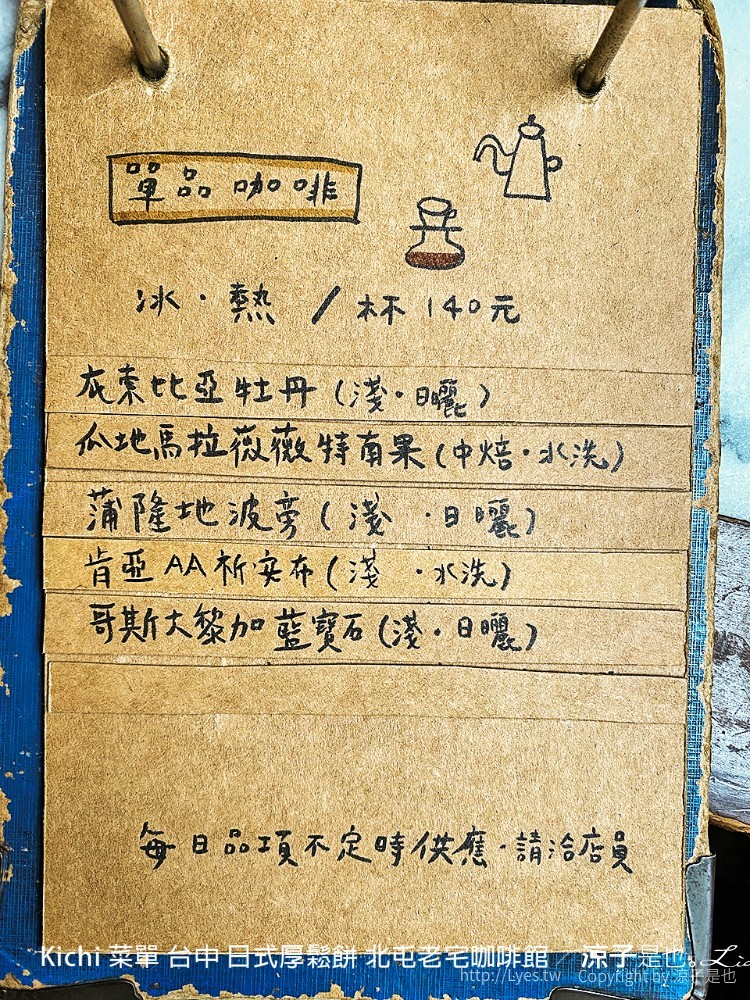 單品咖啡
冰·熱 / 杯 140元
衣索比亞牡丹(淺·日曬)
瓜地馬拉薇薇特南果(中焙·水洗)
蒲隆地波旁(淺 ·日曬)
肯亞AA祈安布(淺 ·水洗)
哥斯大黎加藍寶石(淺·日曬)
每日品項不定時供應·請洽店員
Kichi 菜單 台中 日式厚鬆餅 北屯老宅咖啡館 / 涼子是也
http://Lyes.tw Copyright by 涼子是也